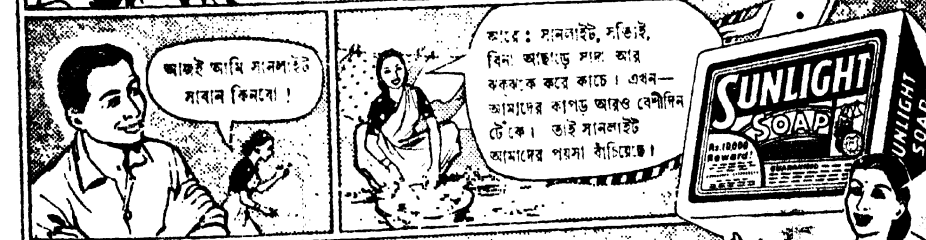 আজই আমি সানলাইট
সাবান কিনবো !
আরে : সানলাইট, সত্যিই,
বিনা আছাড়ে সাদা আর
ঝকঝকে করে কাচে । এখন—
আমাদের কাপড় আরও বেশীদিন
টেঁকে। তাই সানলাইট
আমাদের পয়সা বাঁচিয়েছে।
SUNLIGHT
SOAP
Rs.10,000
Reward!
SUNLIGHT
SOAP